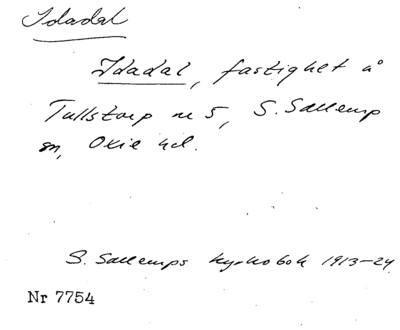 Idadal
Idadal, fastighet å
Tullstorp nr 5, S. Sallerup
sn, Oxie hd.
S. Sallerups kyrkobok 1913-24
Nr 7754